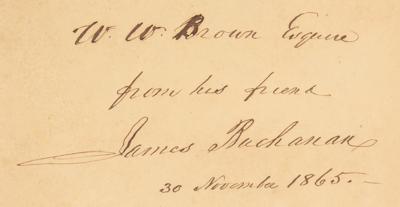 W. W. Brown Esquire
from his friend
James Buchanan
30 November 1865.—